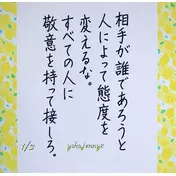 相手が誰であろうと
人によって態度を
変えるな。
すべての人に
敬意を持って接しろ。
1/3